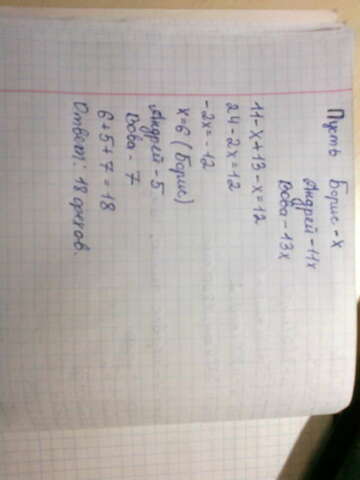 Пусть Борис - х
Андрей - 11х
Вова - 13х
11 - х + 13 - х = 12
24 - 2х = 12
-2х = -12
х = 6 (Борис)
Андрей - 5
Вова - 7
6 + 5 + 7 = 18
Ответ: 18 орехов.